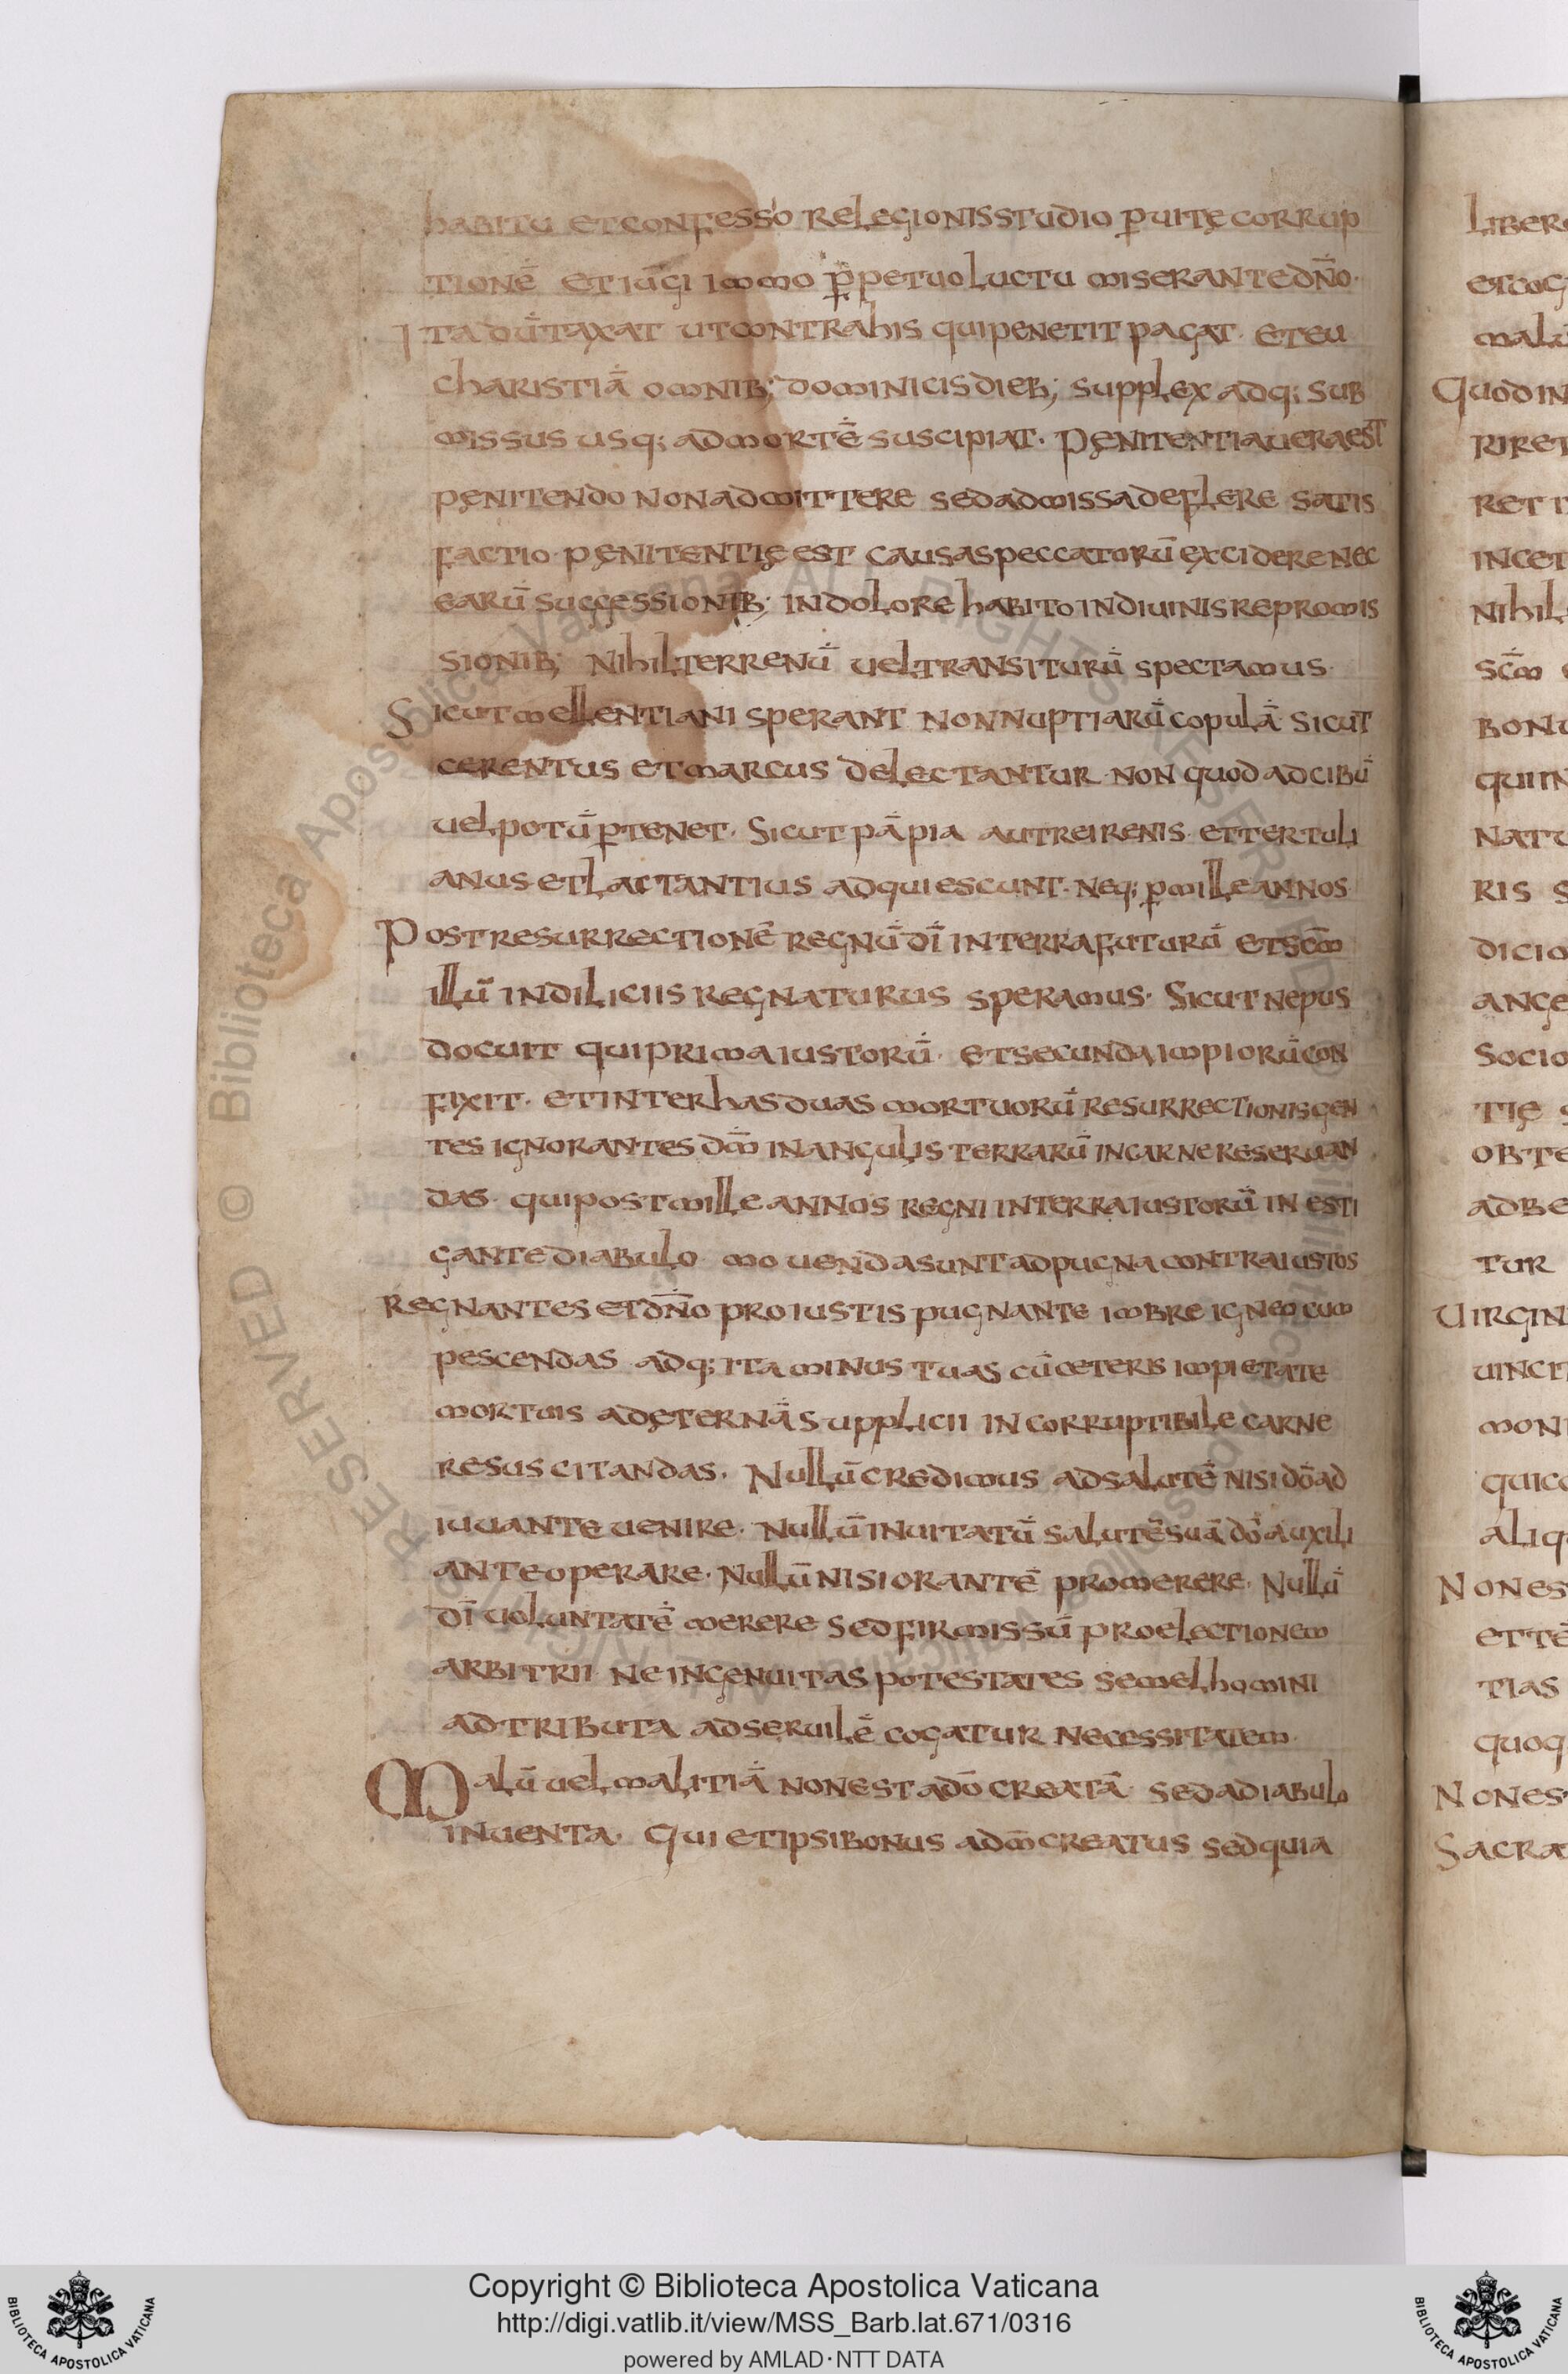 habitu et confesso relegionis studio p̱ uitę corrup
tionē et iūgi immo p̱petuo luctu miserante dn̄o·
Ita dū́taxat ut contrahis qui penetit pagat· et eu
charistiā́ omnib; dominicis dieb; supplex adq; sub
missus usq; ad mortē suscipiat· Pęnitentia uera est
pęnitendo non admittere sed admissa deflere satis
factio pęnitentię est causas peccatorū excidere nec
earū suggessionib; indolore habito in diuinis repromis
sionib; nihil terrenū́ uel transiturū́ spectamus·
Sicut mellentiani sperant non nuptiarū́ copulā́ sicut
cerentus et marcus delectantur· non quod ad cibū́
uel potū́ p̱tenet· Sicut pā́pia autreirenis· et tertuli
anus et lactantius adquiescunt· Neq; p̱ mille annos
Post resurrectionē regnū́ dī́ in terra futurū́ et sc̄m
illū́ in diliciis regnaturus speramus· Sicut nepus
docuit qui prima iustorū́· et secunda impiorū́ con
fixit· et inter has duas mortuorū́ resurrectionis gen
tes ignorantes dm̄ in angulis terrarū́ in carne reseruan
das qui post mille annos regni in terra iustorū́ in esti
gante diabulo mouenda sunt ad pugna contra iustos
Regnantes et dn̄o pro iustis pugnante imbre igneo cum
pescendas adq; ita minus tuas cū́ ceteris impietate
mortuis ad ęternā́ supplicii in corruptibile carne
resuscitandas· Nullū credimus ad salutē nisi dō ad
iuuante uenire· Nullū inuitatū́ salutē suā dō auxili
ante operare· Nullū nisi orantē promerere· Nullū́
dī uoluntatē merere sed firmissū́ pro electionem
arbitrii ne ingenuitas potestates semel homini
adtributa ad seruilē cogatur necessitatem
Malū́ uel malitiā́ non est a dō creatā sed a diabulo
inuenta· qui et ipsi bonus a dm̄ creatus sed quia
Liber
et cog
malu
Quod in
riret
ret
incet
nihil
sc̄m
bonu
qui in
natu
ris s
dicio
ange
socio
tię
obte
ad be
tur
Uirgin
uinct
mon
quic
aliq
Non es
et te
tias
quoq
Non es
Sacra
© Biblioteca Apostolica Vaticana ALL RIGHTS RESERVED
Copyright © Biblioteca Apostolica Vaticana
http://digi.vatlib.it/view/MSS_Barb.lat.671/0316
powered by AMLAD·NTT DATA
BIBLIOTECA APOSTOLICA VATICANA
BIBLIOTECA APOSTOLICA VATICANA